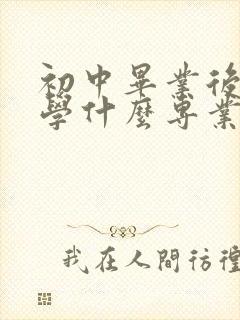 初中畢業後
學什麼專業
我在人間彷徨